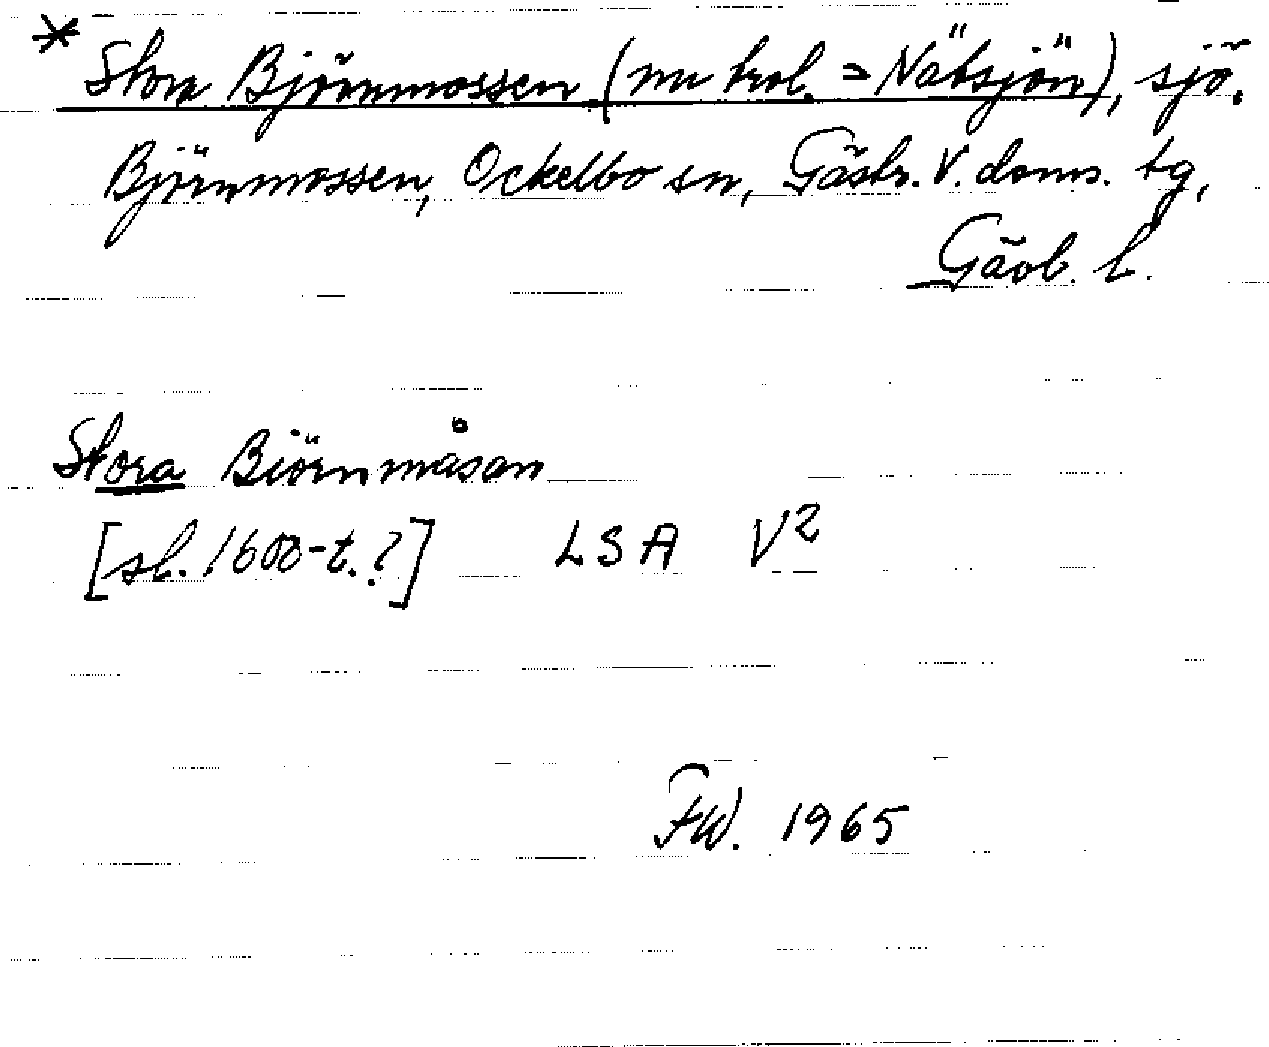 * Stora Björnmossen (nu trol. = Nätsjön), sjö.
Björnmossen, Ockelbo sn, Gästr. V. doms. tg,
Gävl. l.
Stora Biörnmåsan
[sl. 1600-t.?] LSA V2
FW. 1965